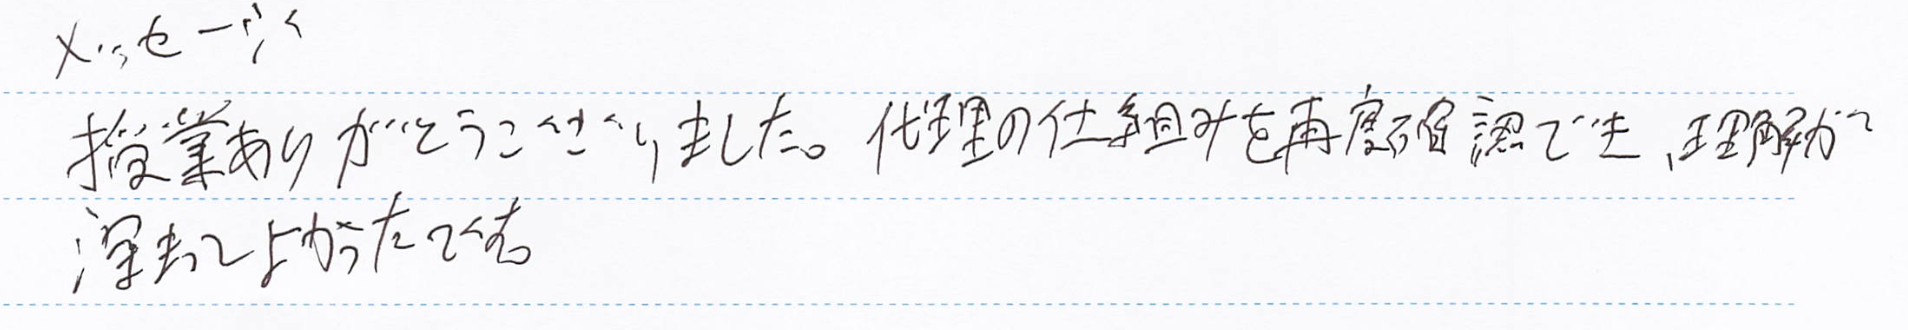 メッセージ
授業ありがとうございました。代理の仕組みを再度確認でき、理解が
深まってよかったです。